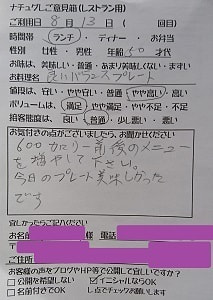 ナチュグレご意見箱(レストラン用)
ご利用日 8月 13日( 回目)
時間帯 ランチ・ディナー・お弁当
性別 女性・男性 年齢 50 才代
お味は、美味しい・普通・あまり美味しくない・まずい
お料理名 良いバランスプレート
値段は、安い・やや安い・普通・やや高い・高い
ボリュームは、満足・やや満足・やや不足・不足
接客態度は、良い・普通・少し悪い・悪い
お気付きの点がございましたら、お聞かせください
600カロリー前後のメニュー
を増やして下さい。
今日のプレート美味しかった
です
宜しかったらご記入ください
お名前 様 電話
〒
ご住所
お客様の声をブログやHP等で公開して宜しいですか?
□公開を希望しない ☑イニシャルならOK
□名前付きでOK レ点でチェックお願いします